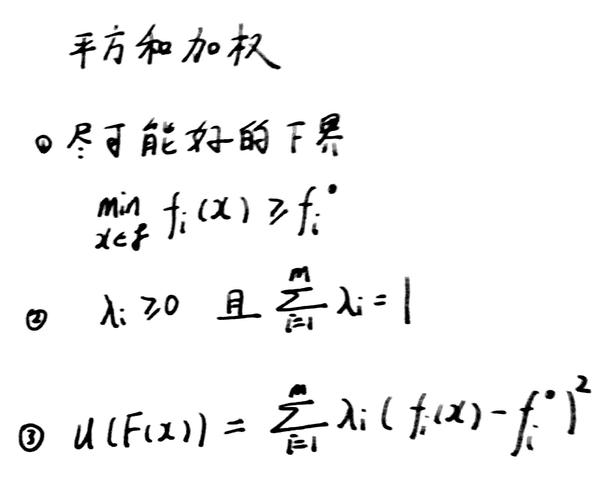 平方和加权
① 尽可能好的下界
min f_i(x) ≥ f_i°
x∈f
② λ_i ≥ 0 且 ∑_{i=1}^{m} λ_i = 1
③ U(F(x)) = ∑_{i=1}^{m} λ_i (f_i(x) - f_i°)²